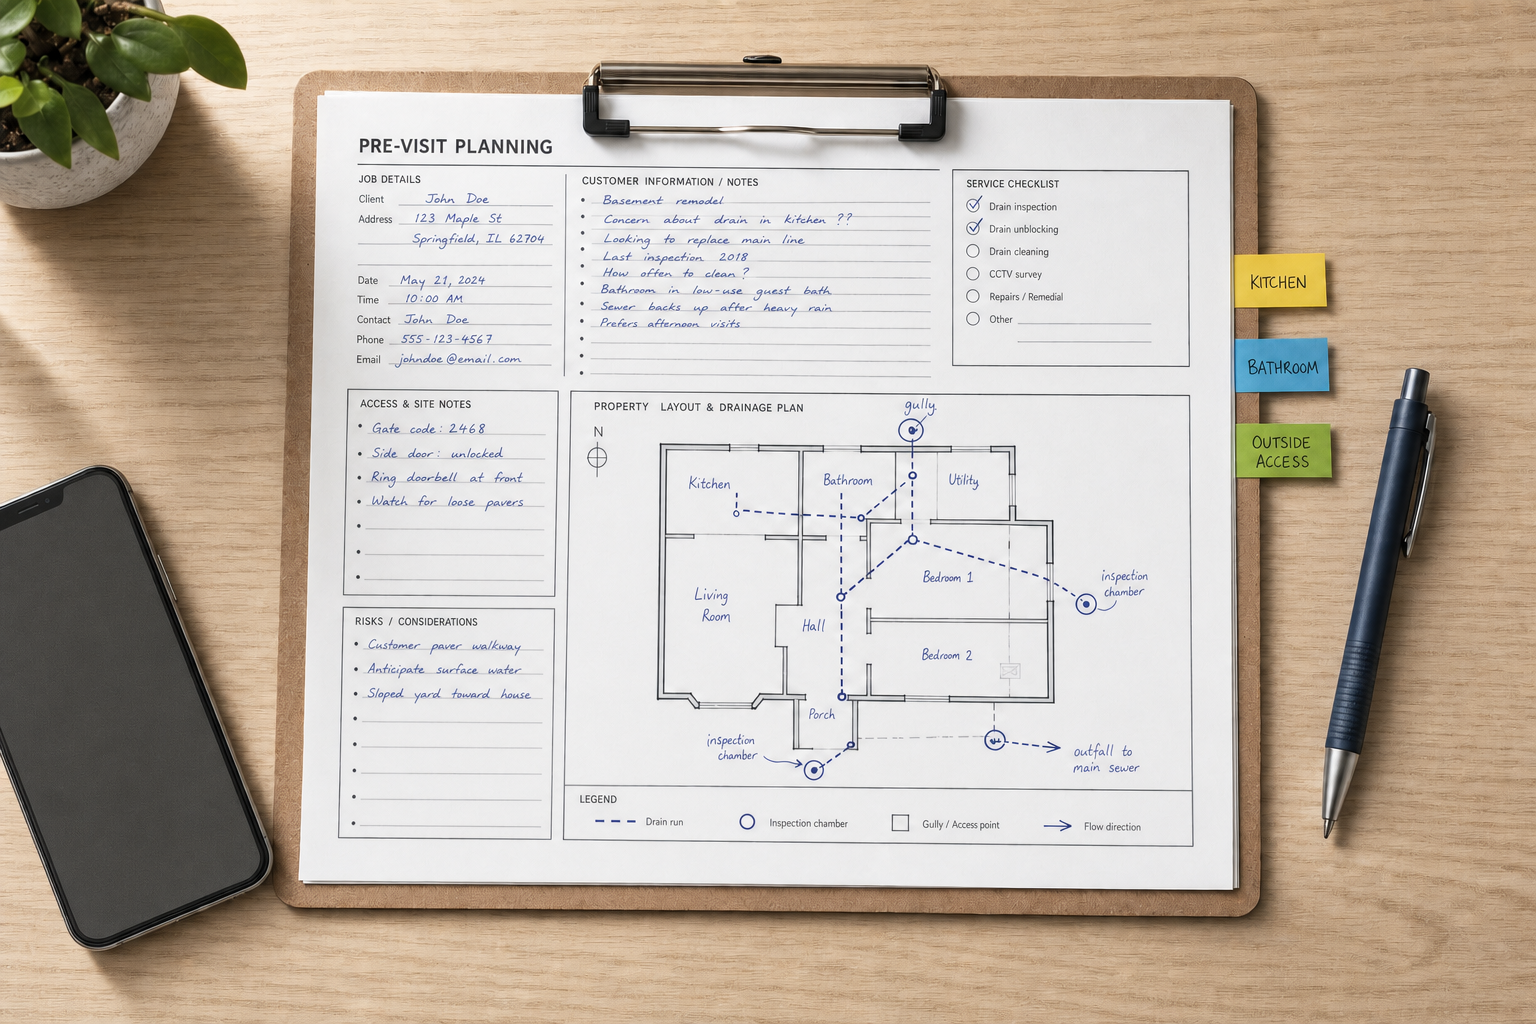 PRE-VISIT PLANNING
JOB DETAILS
Client John Doe
Address 123 Maple St
Springfield, IL 62704
Date May 21, 2024
Time 10:00 AM
Contact John Doe
Phone 555-123-4567
Email johndoe@email.com
CUSTOMER INFORMATION / NOTES
• Basement remodel
• Concern about drain in kitchen ??
• Looking to replace main line
• Last inspection 2018
• How often to clean?
• Bathroom in low-use guest bath
• Sewer backs up after heavy rain
• Prefers afternoon visits
SERVICE CHECKLIST
Drain inspection
Drain unblocking
Drain cleaning
CCTV survey
Repairs / Remedial
Other
KITCHEN
BATHROOM
OUTSIDE
ACCESS
ACCESS & SITE NOTES
• Gate code: 2468
• Side door: unlocked
• Ring doorbell at front
• Watch for loose pavers
RISKS / CONSIDERATIONS
• Customer paver walkway
• Anticipate surface water
• Sloped yard toward house
PROPERTY LAYOUT & DRAINAGE PLAN
gully
N
Kitchen
Bathroom
Utility
Bedroom 1
inspection
chamber
Living
Room
Hall
Bedroom 2
Porch
inspection
chamber
outfall to
main sewer
LEGEND
Drain run
Inspection chamber
Gully / Access point
Flow direction